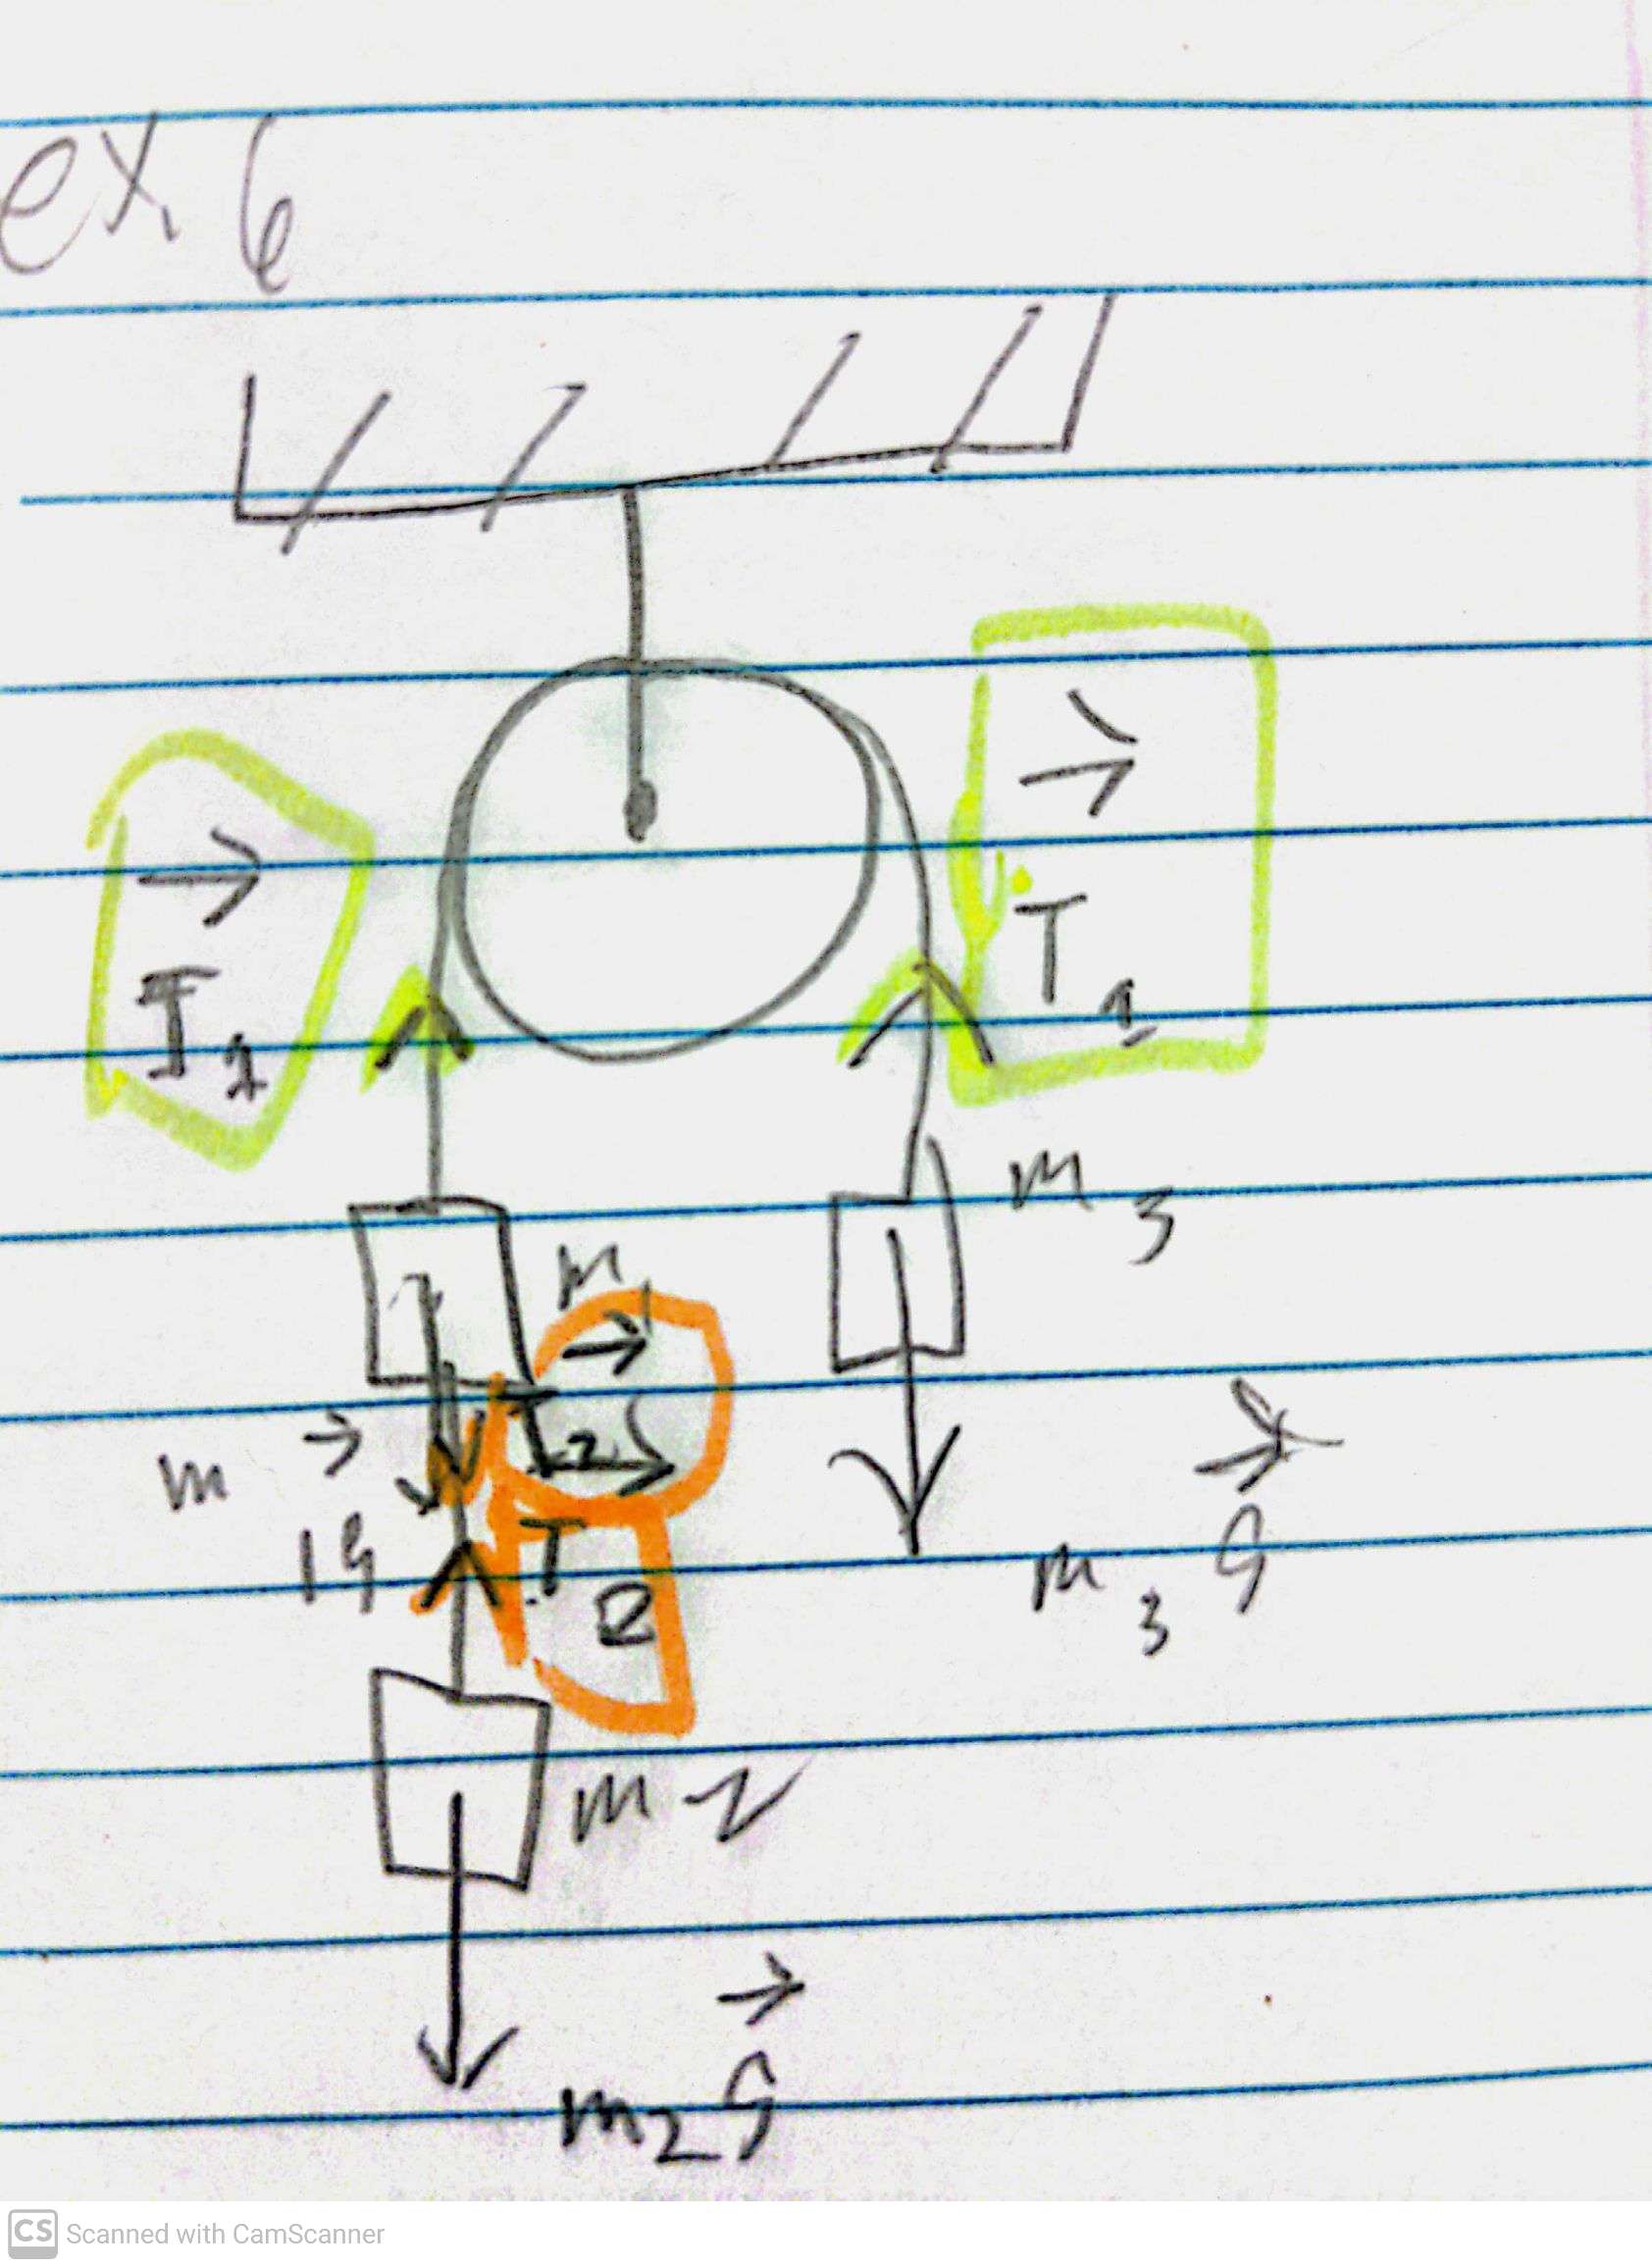 ex. 6
T1
T1
m3
m1
T2
m1g
T2
m3g
m2
m2g
CS Scanned with CamScanner